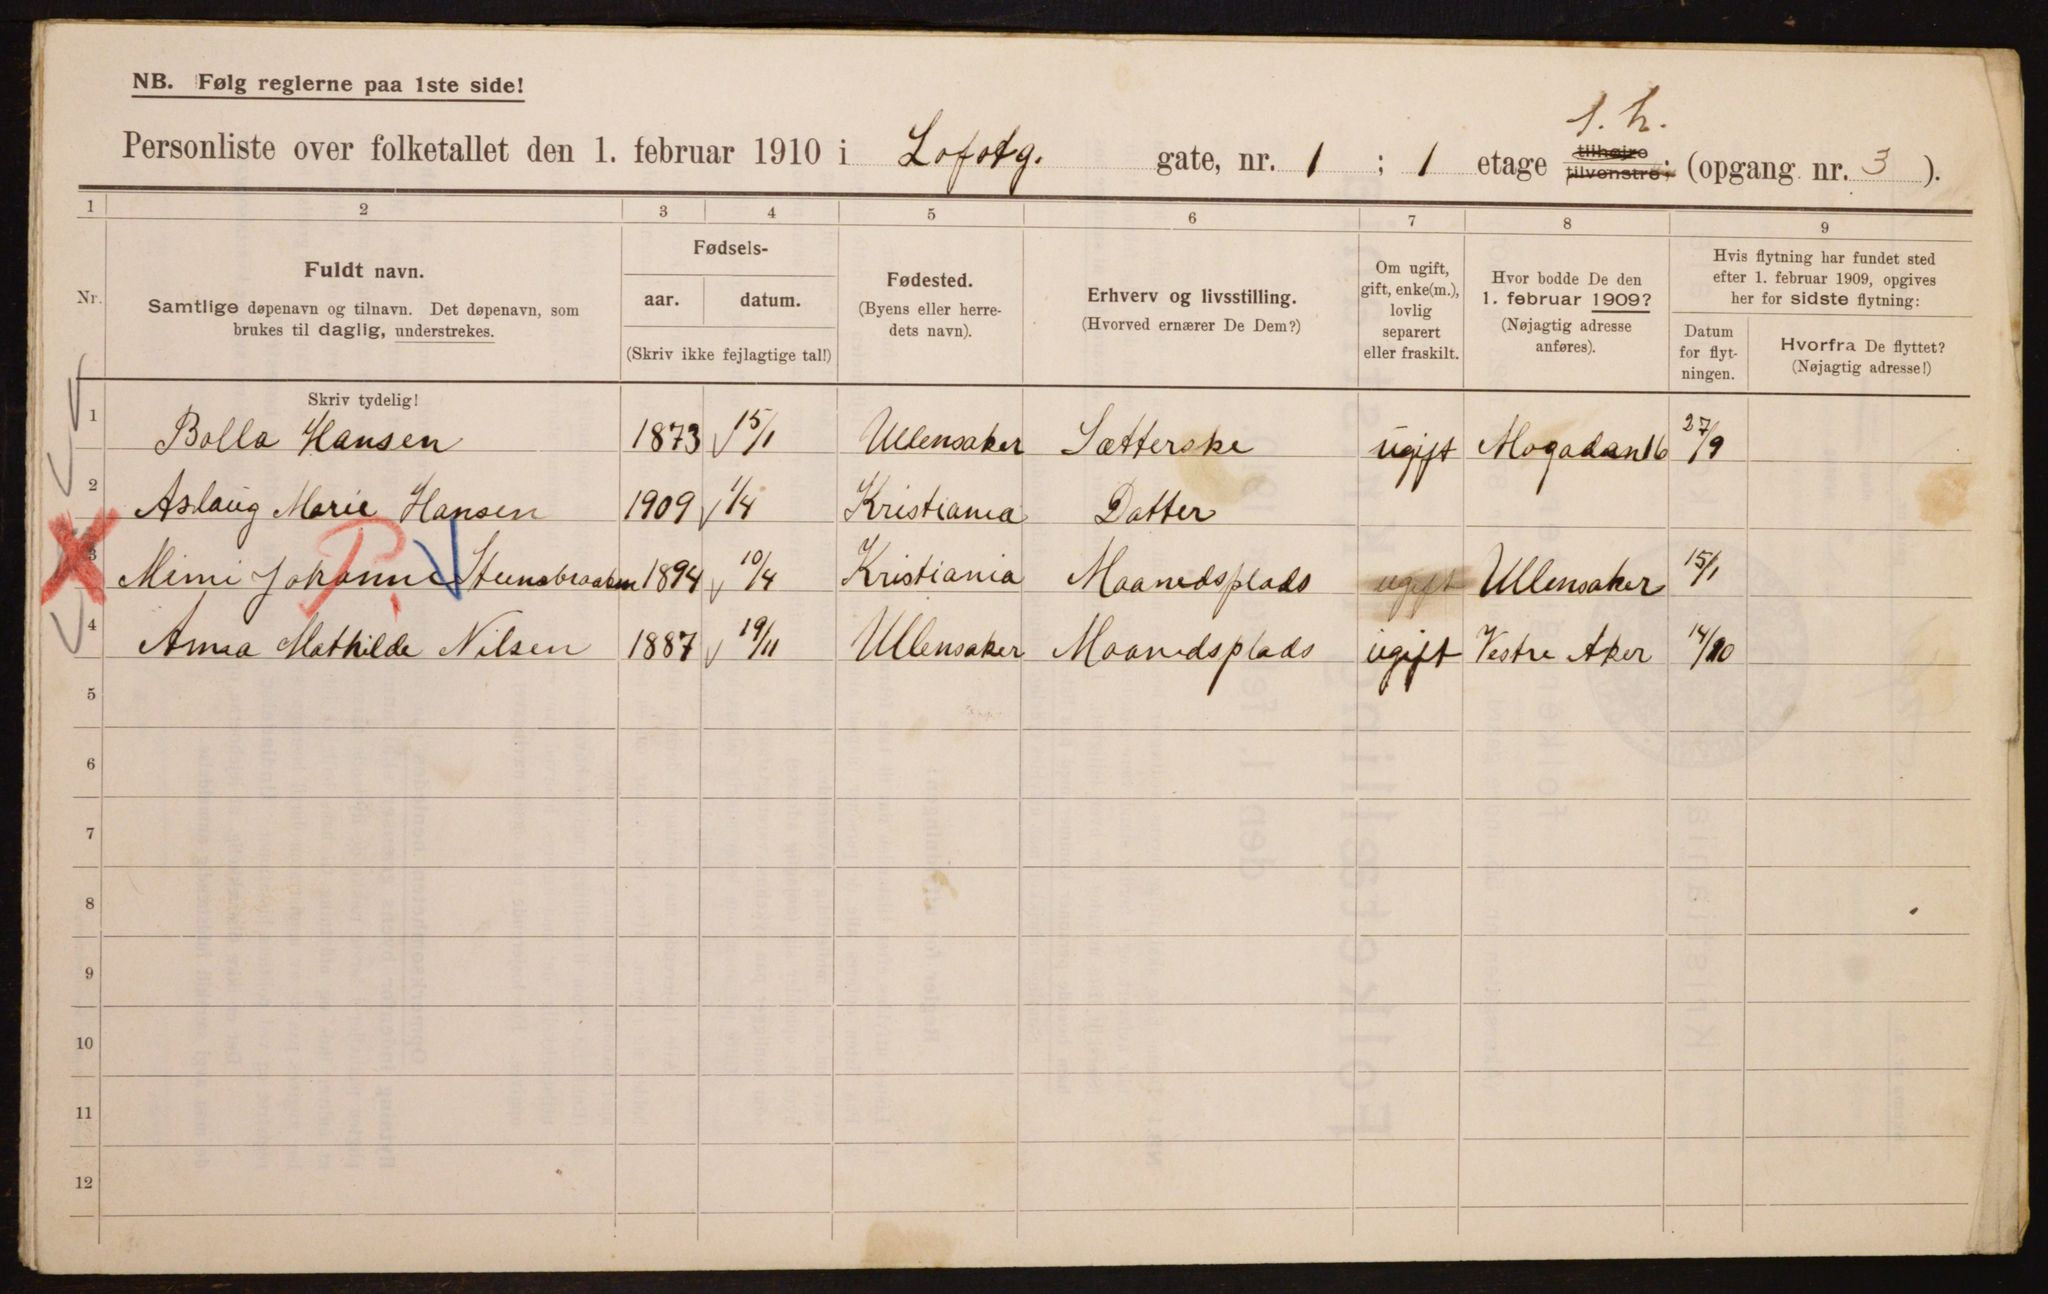 NB. Følg reglerne paa 1ste side!
s. h.
Personliste over folketallet den 1. februar 1910 i Lofotg. gate, nr. 1 ; 1 etage tilhøjre tilvenstre; (opgang nr. 3 ).
1 2 3 4 5 6 7 8 9
Nr.
Fuldt navn.
Samtlige døpenavn og tilnavn. Det døpenavn, som
brukes til daglig, understrekes.
Fødsels-
aar. datum.
(Skriv ikke fejlagtige tal!)
Fødested.
(Byens eller herre-
dets navn).
Erhverv og livsstilling.
(Hvorved ernærer De Dem?)
Om ugift,
gift, enke(m.),
lovlig
separert
eller fraskilt.
Hvor bodde De den
1. februar 1909?
(Nøjagtig adresse
anføres).
Hvis flytning har fundet sted
efter 1. februar 1909, opgives
her for sidste flytning:
Datum
for flyt-
ningen.
Hvorfra De flyttet?
(Nøjagtig adresse!)
Skriv tydelig!
1 Bolla Hansen 1873 15/1 Ullensaker Sætterske ugift Mogadan 16 27/9
2 Aslaug Marie Hansen 1909 1/4 Kristiania Datter
3 Mimi Johanne Steensbraaten 1894 10/4 Kristiania Maanedsplads ugift Ullensaker 15/1
4 Anna Mathilde Nilsen 1887 19/11 Ullensaker Maanedsplads ugift Vestre Aker 14/10
5
6
7
8
9
10
11
12